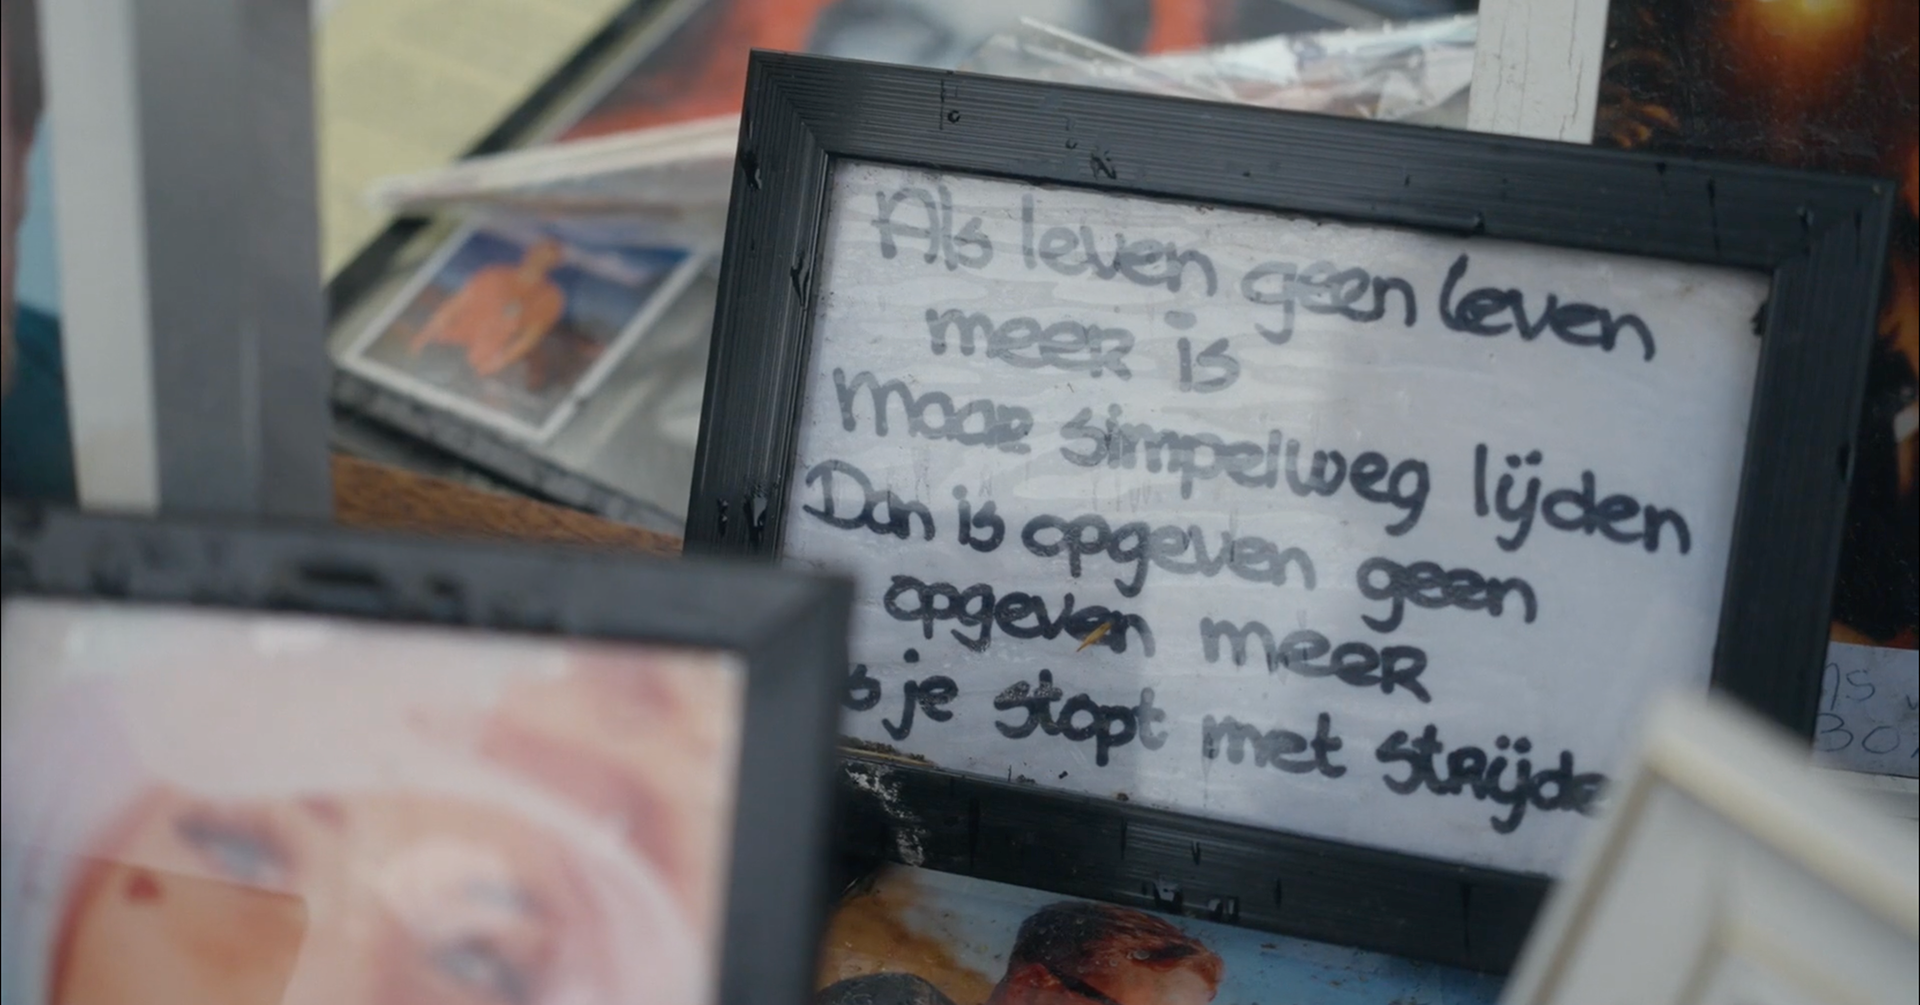 Als leven geen leven
meer is
Maar simpelweg lijden
Dan is opgeven geen
opgeven meer
je stopt met